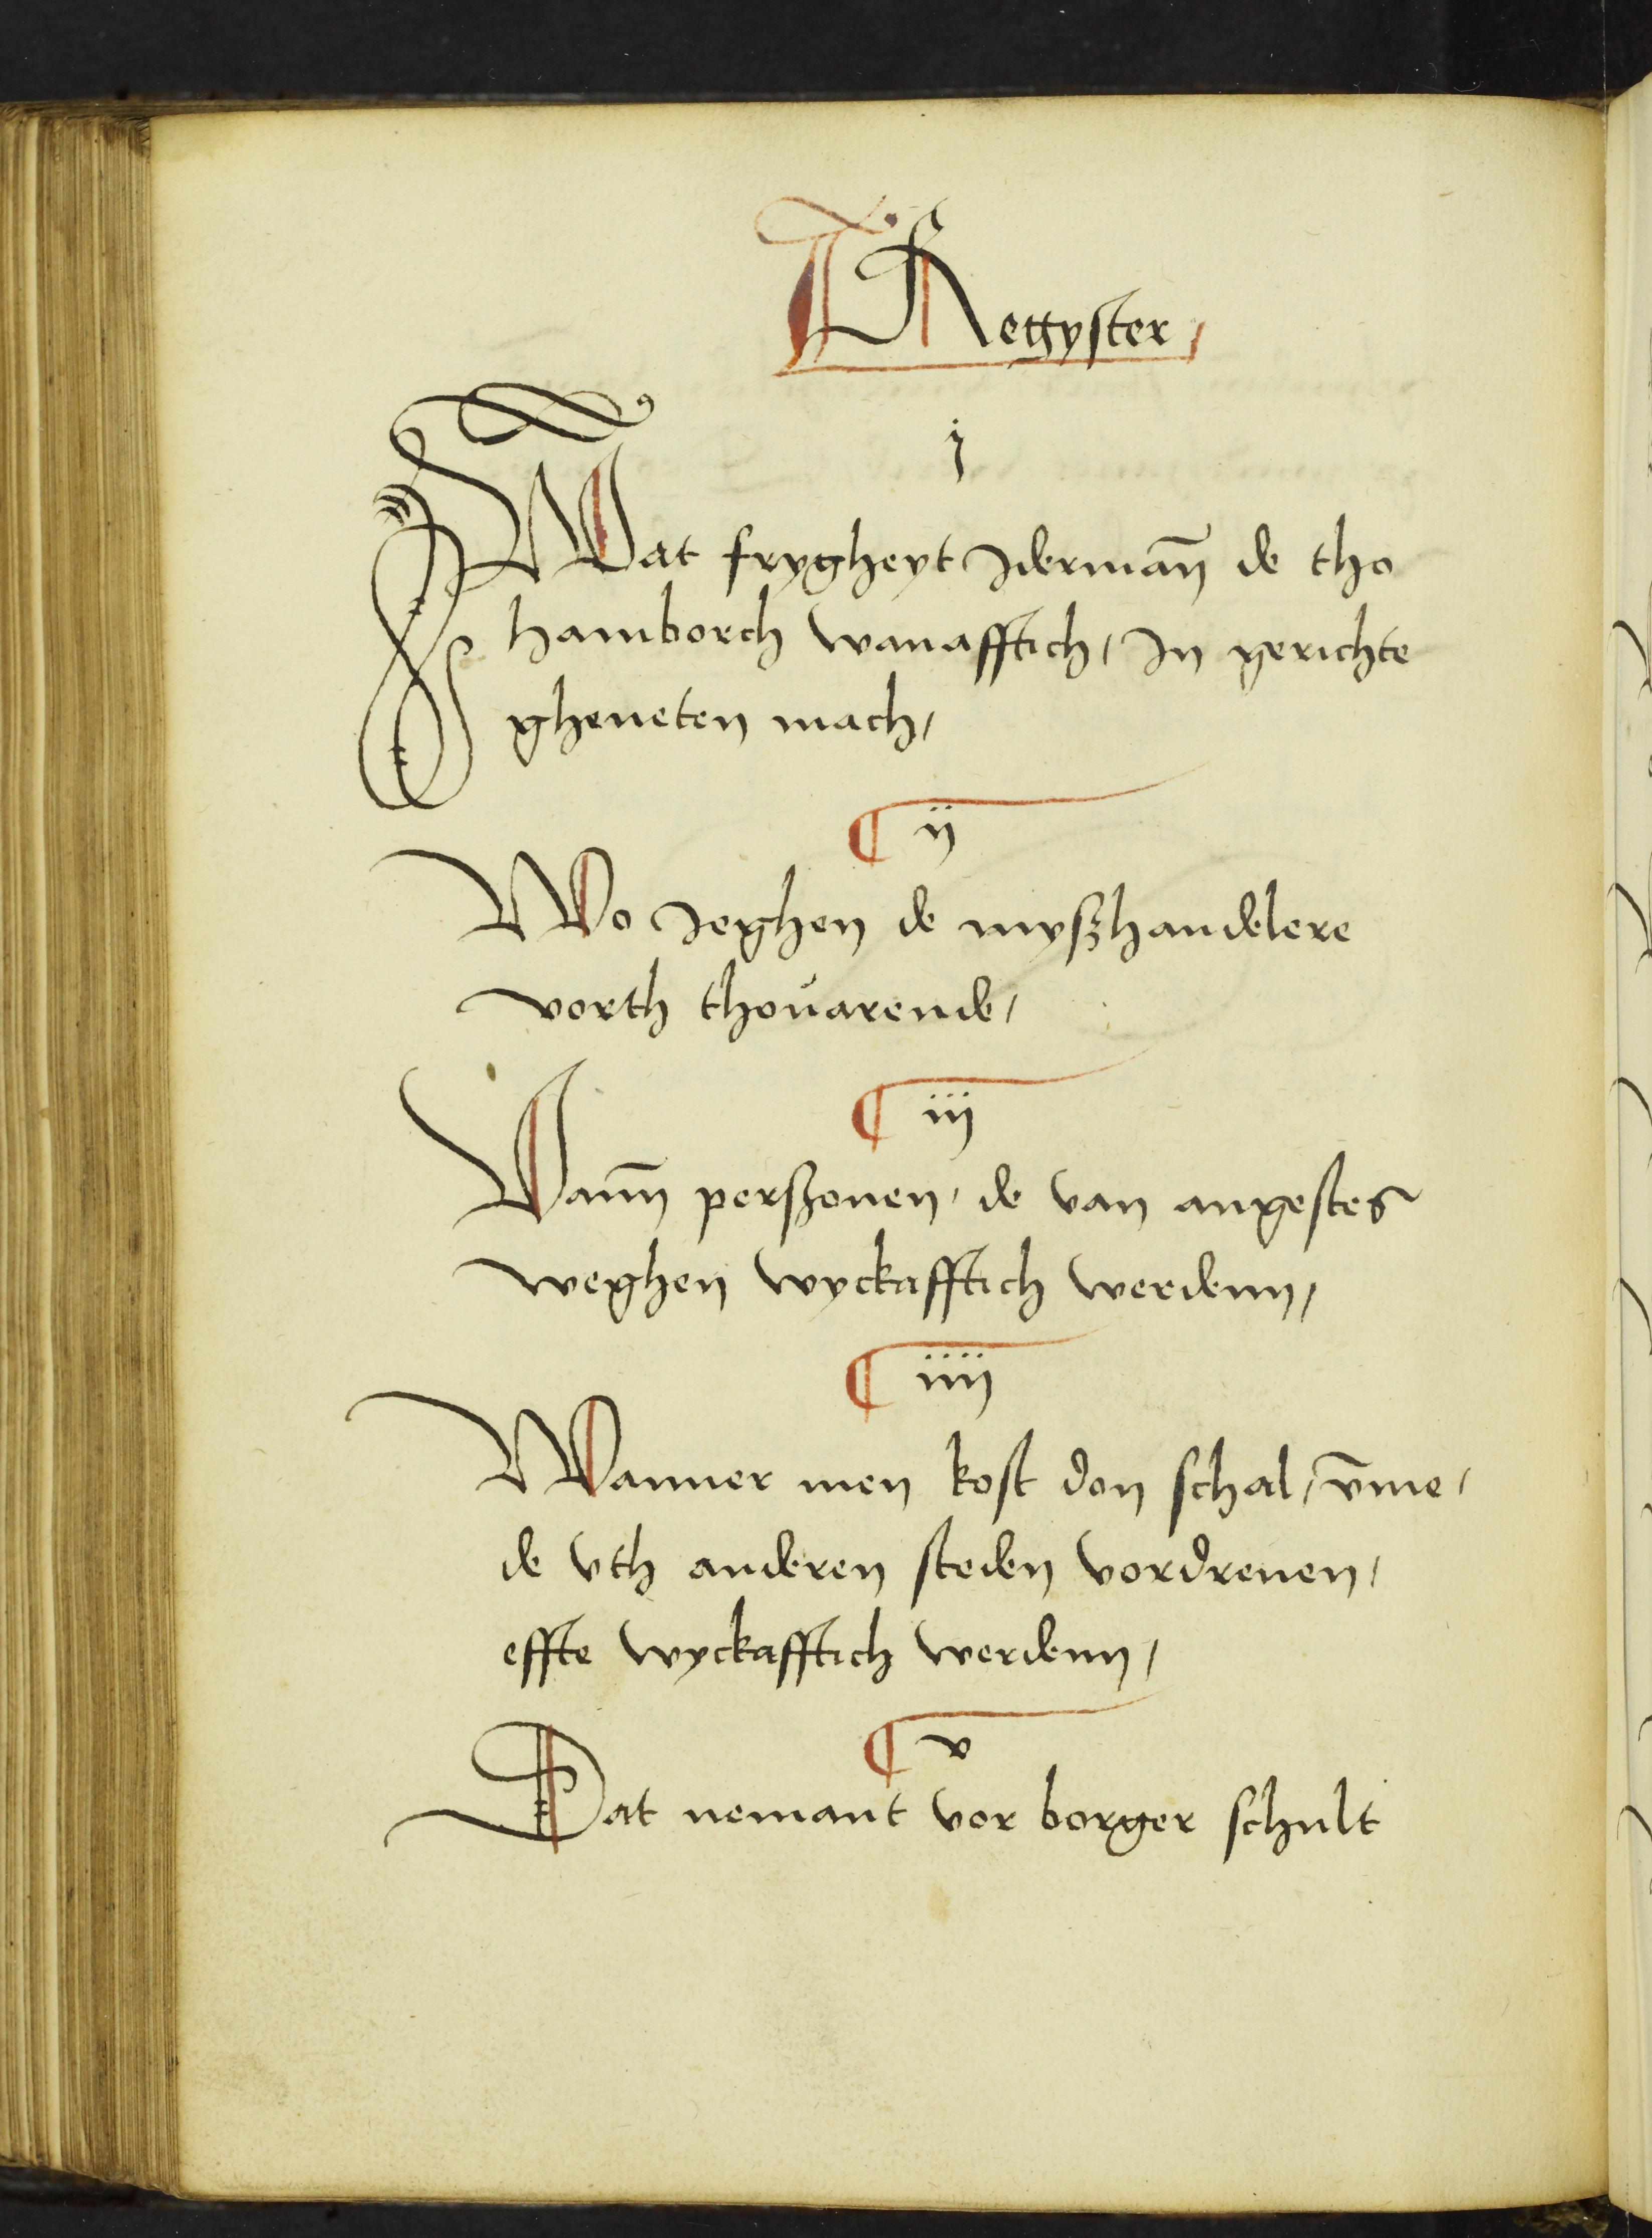 Regyster /
j
Wat frygheyt Jderman̄ de tho
hamborch wanafftich / Jn gerichte
gheneten mach /
¶ ij
Wo Jeghen de myszhandelere
vorth thouarende /
¶ iij
Vann̄ perszonen / de van angestes
weghen wyckafftich werdenn /
¶ iiij
Wanner men kost don schal / v̄me /
de vth anderen steden vordreuen /
effte wyckafftich werdenn /
¶ v
Dat nemant vor borger schult